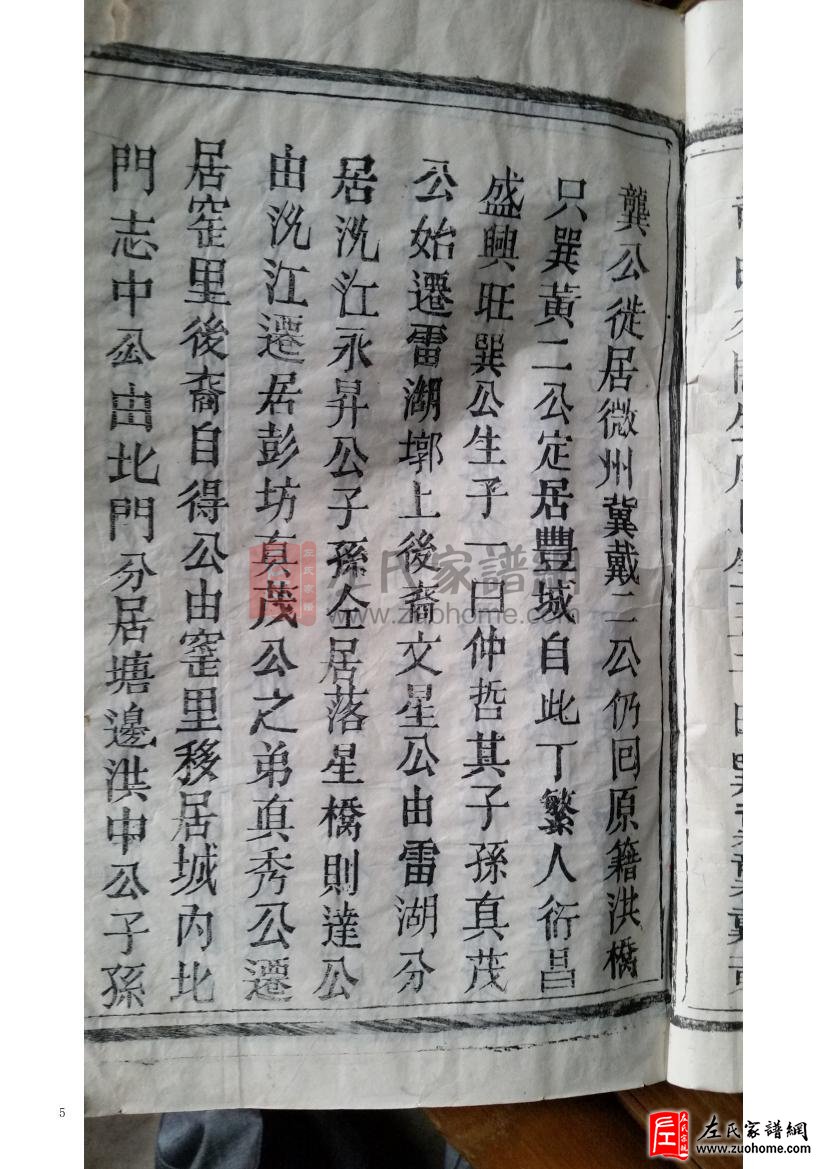 龔公徙居微州冀戴二公仍回原籍洪橋
只巽黃二公定居豐城自此丁繁人衍昌
盛興旺巽公生子一曰仲哲其子孫真茂
公始遷雷湖墎上後裔文星公由雷湖分
居沇江永昇公子孫仝居落星橋則達公
由沇江遷居彭坊真茂公之弟真秀公遷
居窑里後裔自得公由窑里移居城內北
門志中公出北門分居塘邊洪中公子孫
左氏家譜網
www.zuohome.com
5
左氏家譜網
www.zuohome.com